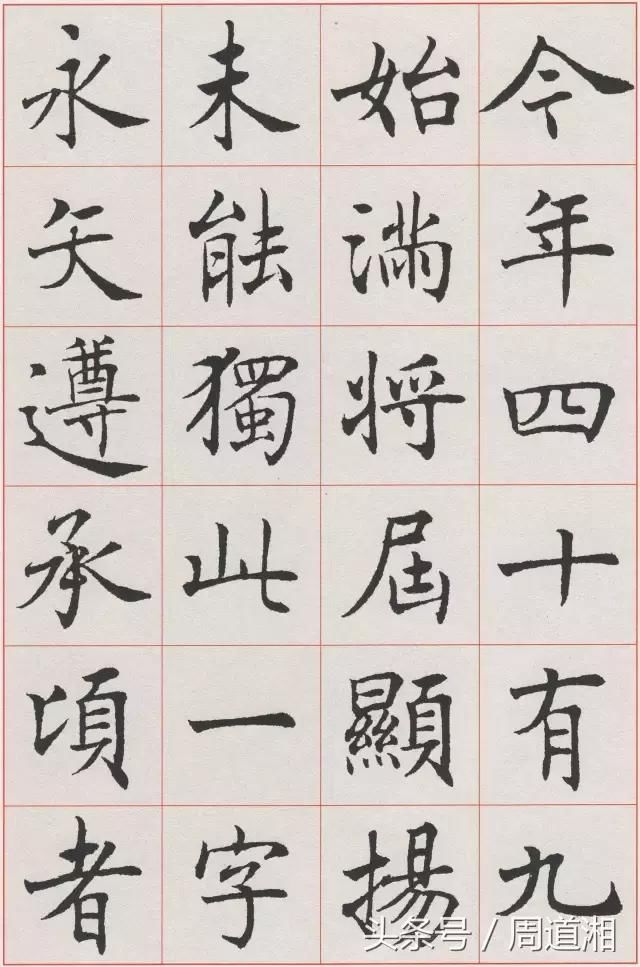 今年四十有九
始滿將屆顯揚
未能獨此一字
永矢遵承頃者
头条号 / 周道湘